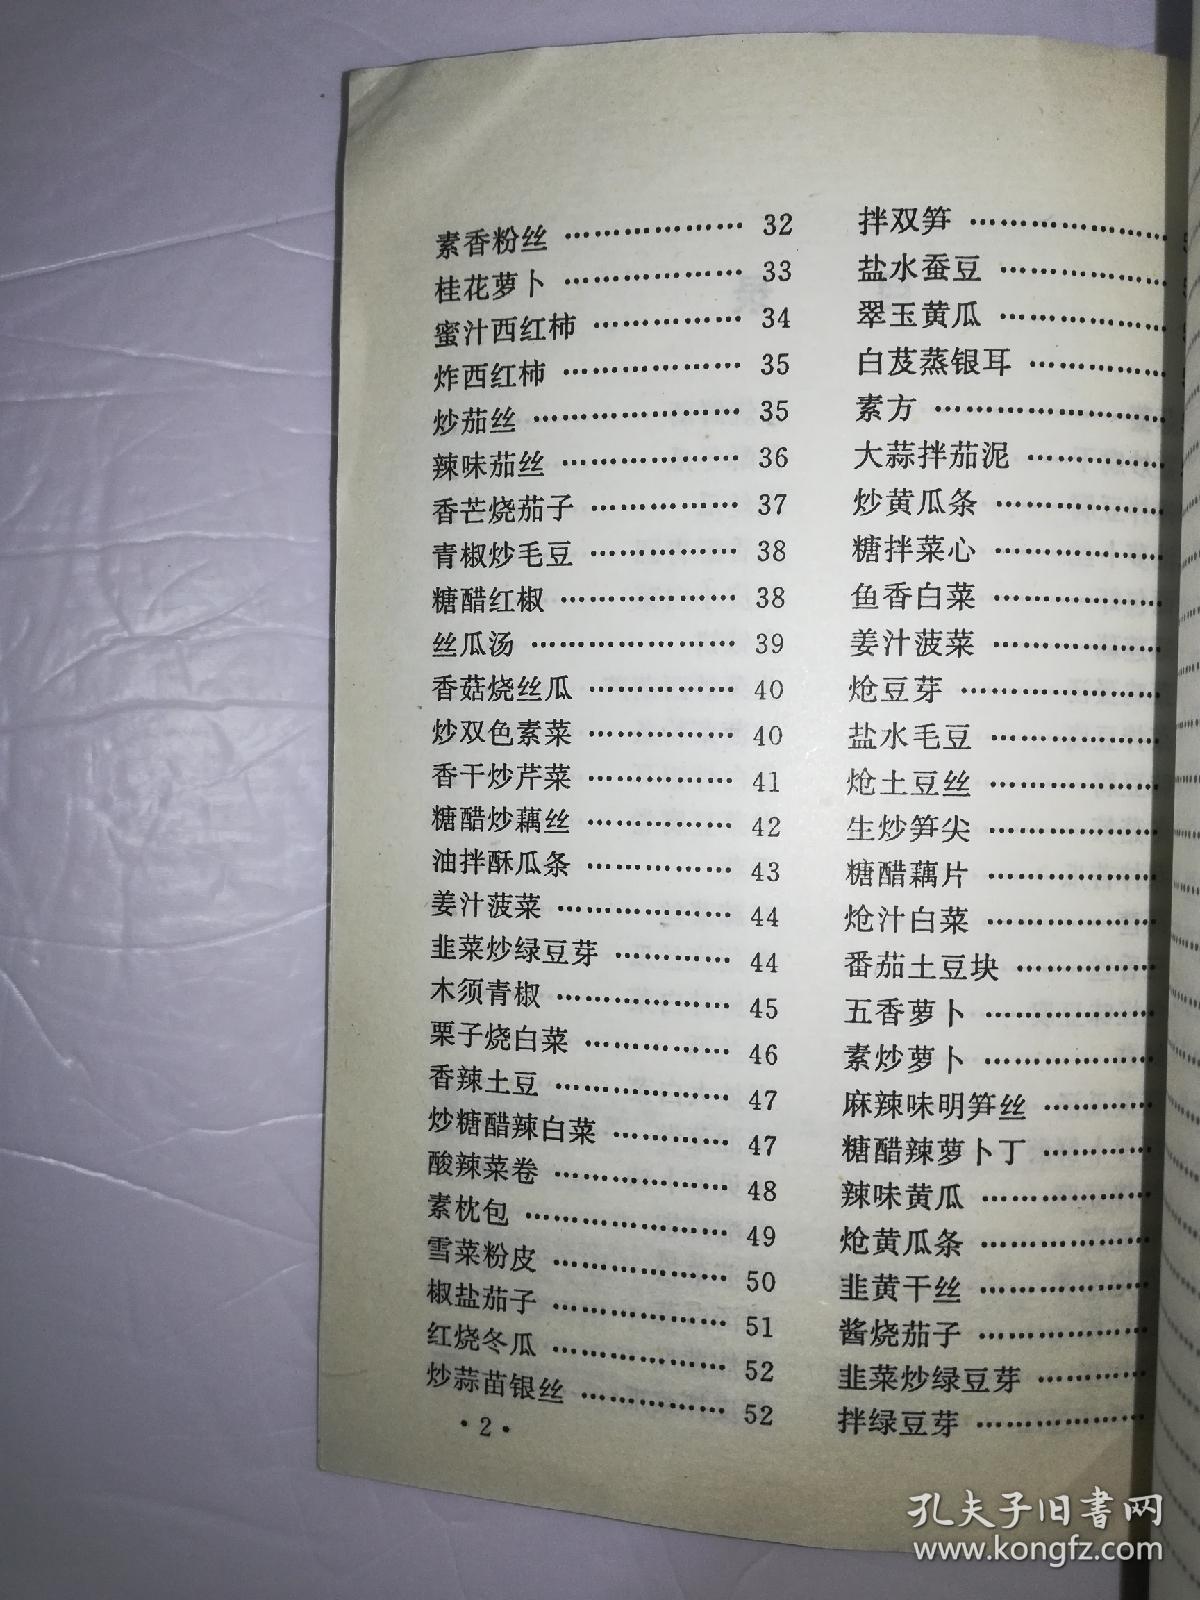 素香粉丝 ………………… 32
桂花萝卜 ………………… 33
蜜汁西红柿 ……………… 34
炸西红柿 ………………… 35
炒茄丝 …………………… 35
辣味茄丝 ………………… 36
香芒烧茄子 ……………… 37
青椒炒毛豆 ……………… 38
糖醋红椒 ………………… 38
丝瓜汤 …………………… 39
香菇烧丝瓜 ……………… 40
炒双色素菜 ……………… 40
香干炒芹菜 ……………… 41
糖醋炒藕丝 ……………… 42
油拌酥瓜条 ……………… 43
姜汁菠菜 ………………… 44
韭菜炒绿豆芽 …………… 44
木须青椒 ………………… 45
栗子烧白菜 ……………… 46
香辣土豆 ………………… 47
炒糖醋辣白菜 …………… 47
酸辣菜卷 ………………… 48
素枕包 …………………… 49
雪菜粉皮 ………………… 50
椒盐茄子 ………………… 51
红烧冬瓜 ………………… 52
炒蒜苗银丝 ……………… 52
·2·
拌双笋 ……………………
盐水蚕豆 …………………
翠玉黄瓜 …………………
白芨蒸银耳 ………………
素方 ………………………
大蒜拌茄泥 ………………
炒黄瓜条 …………………
糖拌菜心 …………………
鱼香白菜 …………………
姜汁菠菜 …………………
炝豆芽 ……………………
盐水毛豆 …………………
炝土豆丝 …………………
生炒笋尖 …………………
糖醋藕片 …………………
炝汁白菜 …………………
番茄土豆块 ………………
五香萝卜 …………………
素炒萝卜 …………………
麻辣味明笋丝 ……………
糖醋辣萝卜丁 ……………
辣味黄瓜 …………………
炝黄瓜条 …………………
韭黄干丝 …………………
酱烧茄子 …………………
韭菜炒绿豆芽 ……………
拌绿豆芽 …………………
孔夫子旧书网
www.kongfz.com